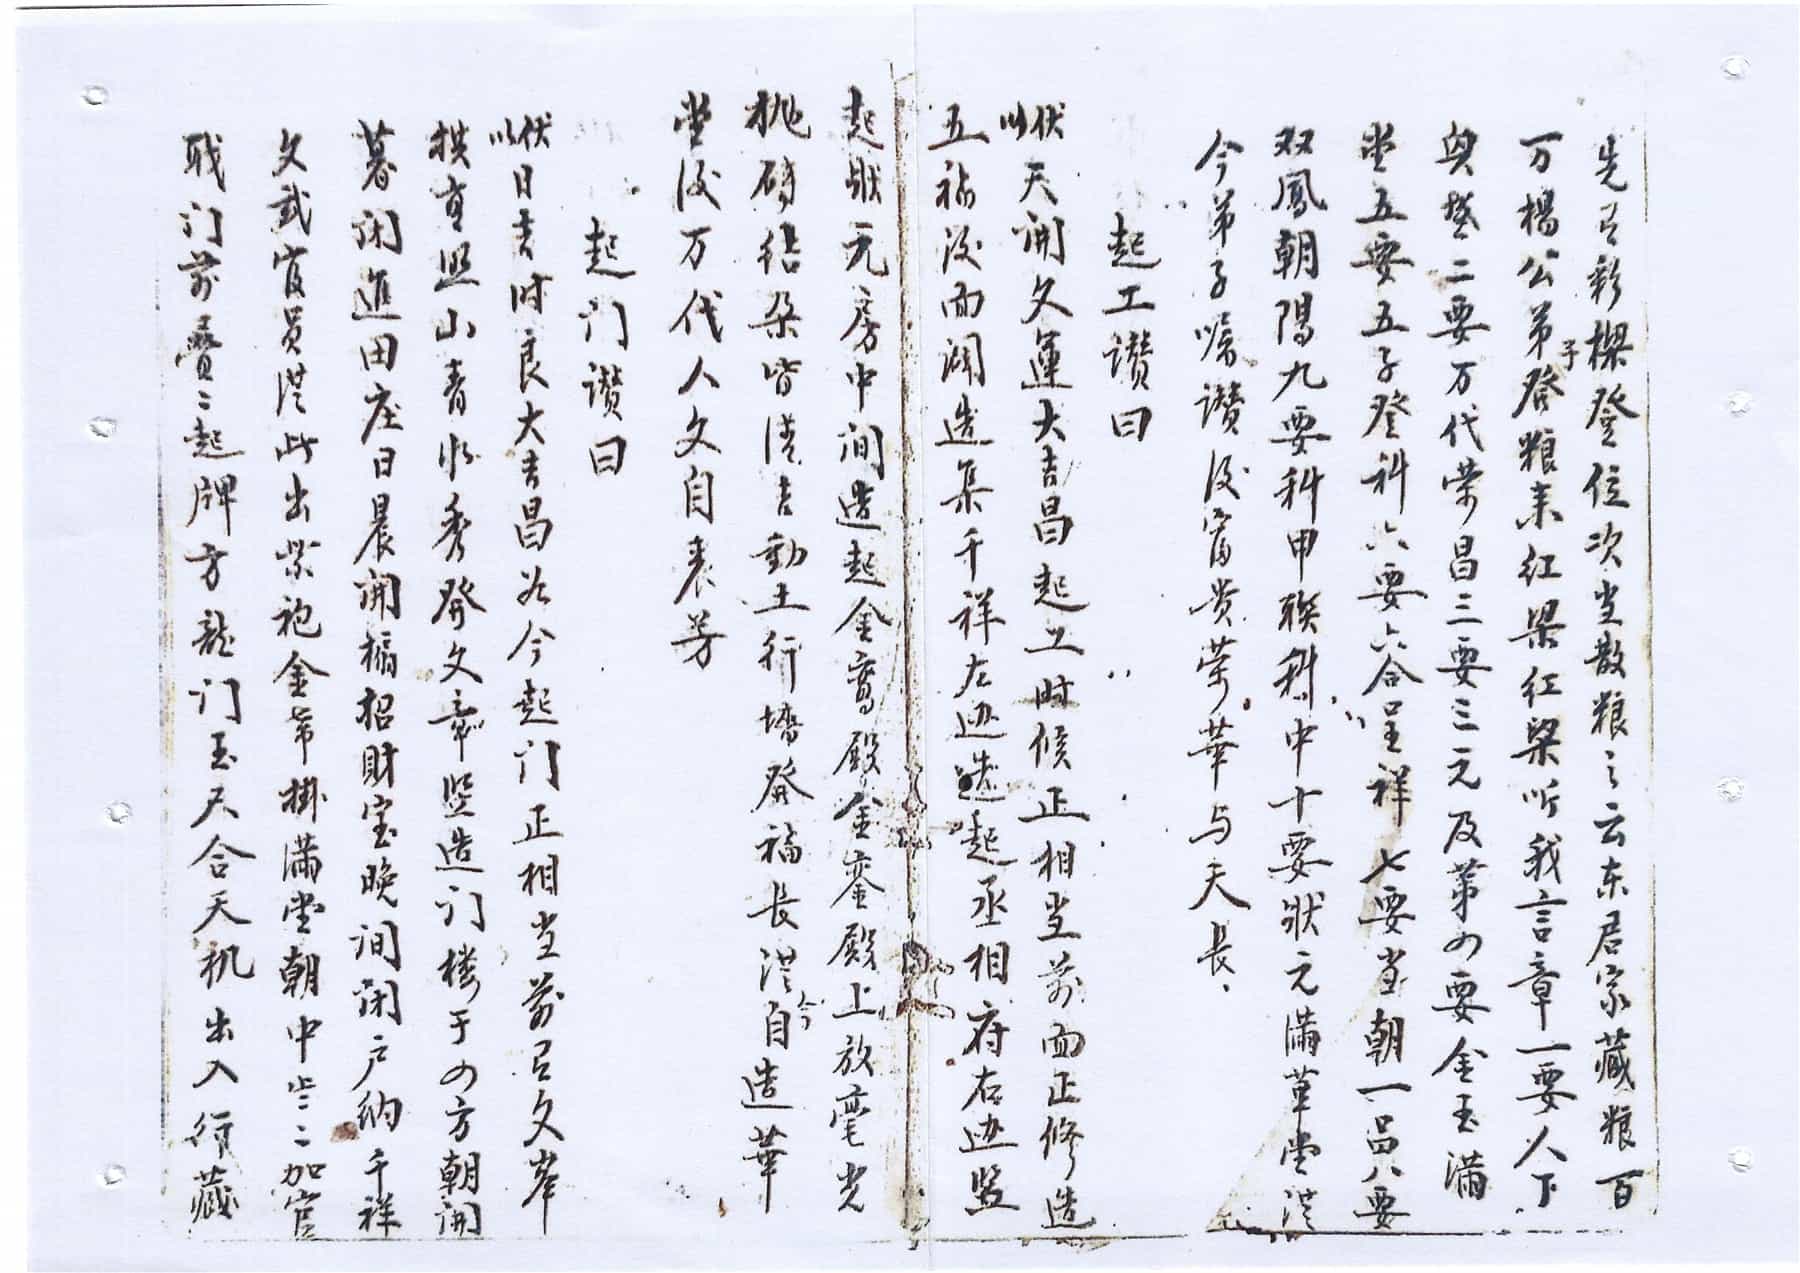 先召彩樑登位次堂散粮之云东居家藏粮百
万楊公弟子登粮来红梁红梁听我言章一要人丁
與二要万代荣昌三要三元及第四要金玉滿
堂五要五子登科六要六合呈祥七要堂朝一品八要
双鳳朝陽九要科甲联科中十要狀元滿革堂從
今弟子嘱讃後富贵荣華与天長
起工讃曰
伏以天開文運大吉昌起工时候正相当前面正修造
五福後面闊造集千祥左边造起丞相府右边竖
起狀元房中間造起金鸾殿金鑾殿上放毫光
抛磚结朵皆清吉動土行墻發福長從今自造華
堂後万代人文自表芳
起门讃曰
伏以日吉时良大吉昌於今起门正相当前召文峯
拱直照山青水秀發文章竖造门楼于四方朝開
暮闭進田庄日晨開福招財宝晚间闭户纳千祥
文武官員從此出紫袍金带掛滿堂朝中步々加官
职门前叠々起牌方龍门玉尺合天机出入行藏